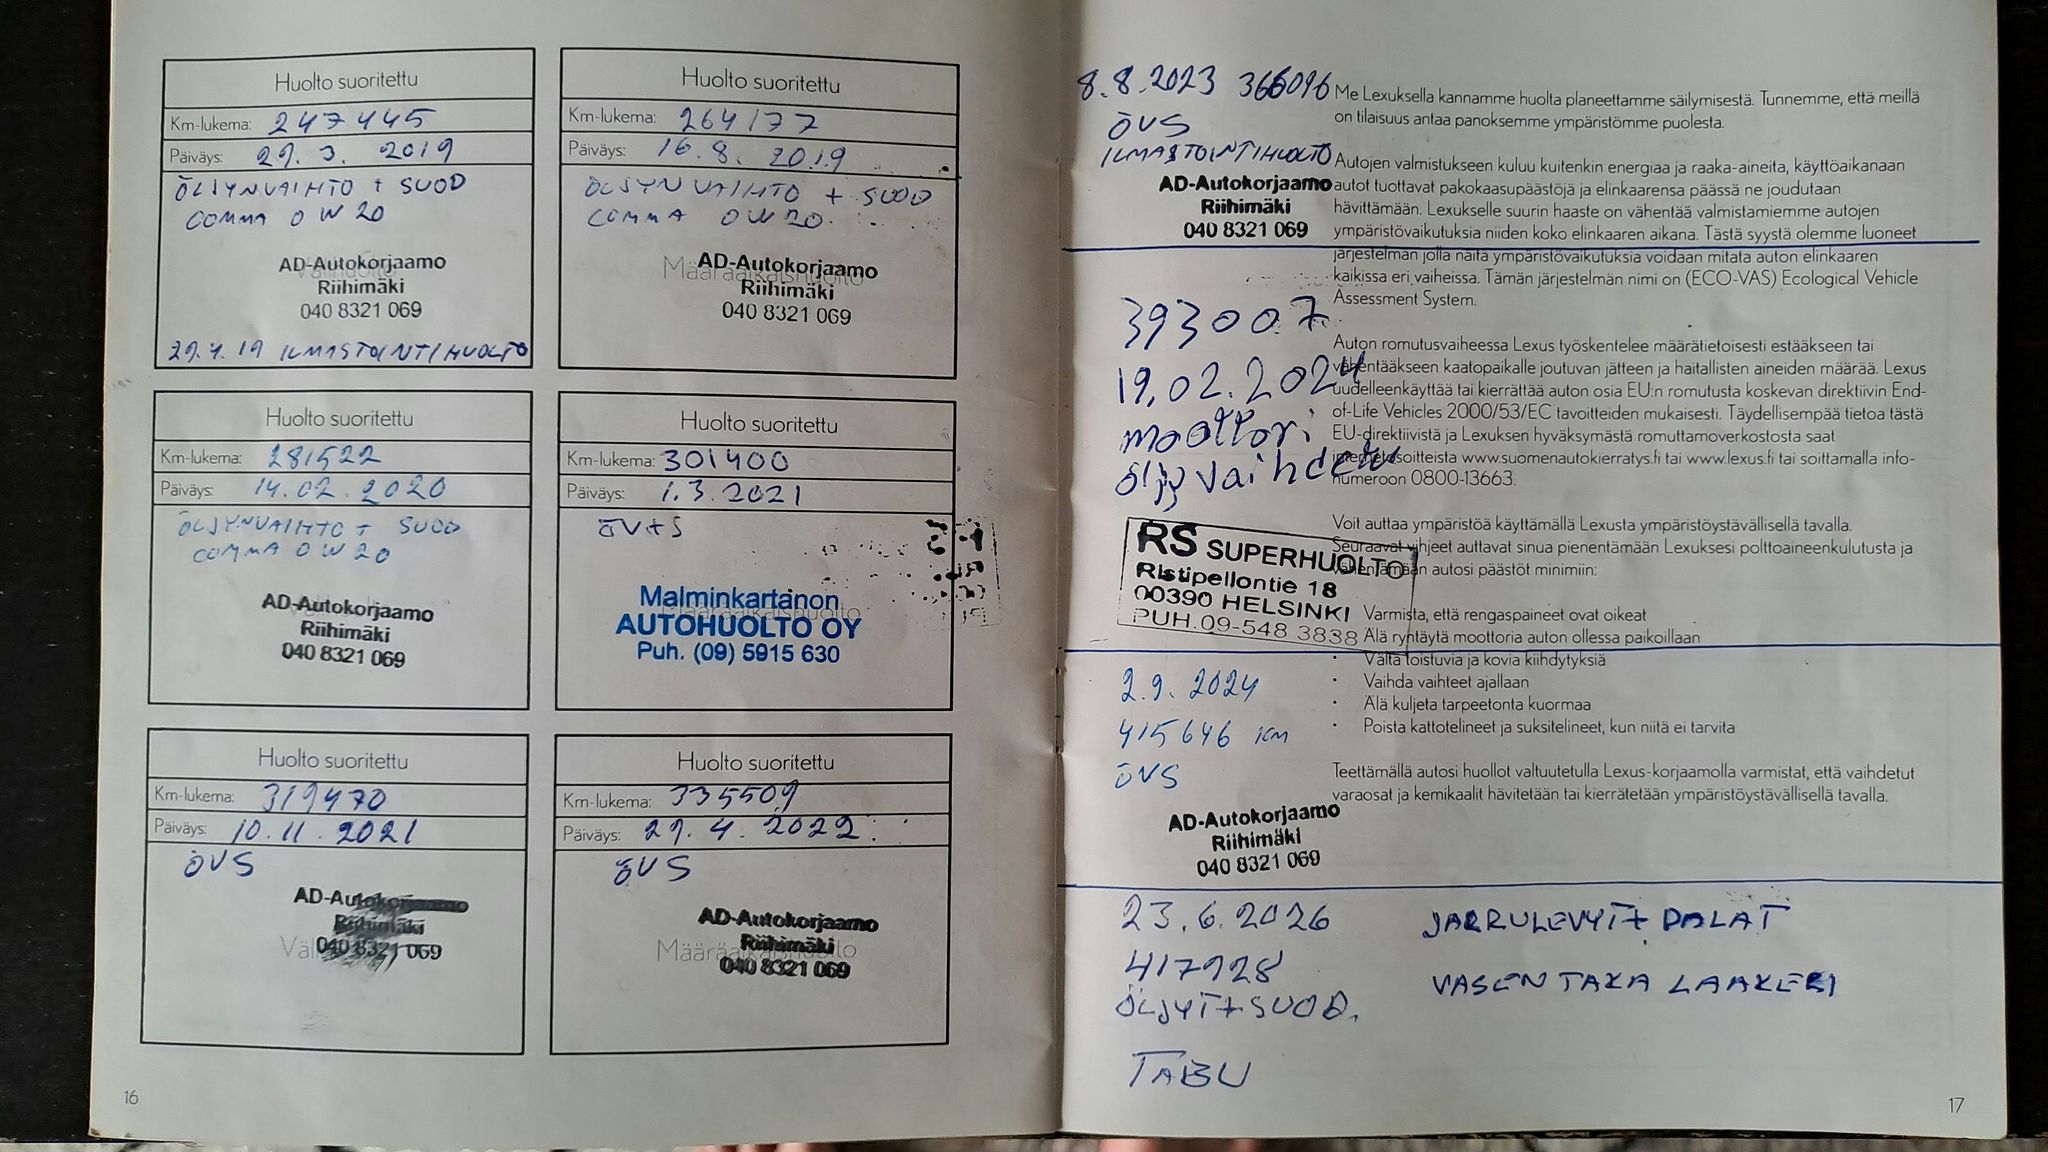 Huolto suoritettu
Km-lukema: 247445
Päiväys: 29.3. 2019
ÖLJYNVAIHTO + SUOD
COMMA 0W20
AD-Autokorjaamo
Riihimäki
040 8321 069
29.4.19 ILMASTOINTIHUOLTO
Huolto suoritettu
Km-lukema: 264177
Päiväys: 16.8. 2019
ÖLJYNVAIHTO + SUOD
COMMA 0W20
Määräaikaishuolto
AD-Autokorjaamo
Riihimäki
040 8321 069
Huolto suoritettu
Km-lukema: 281522
Päiväys: 14.02.2020
ÖLJYNVAIHTO + SUOD
COMMA 0W20
AD-Autokorjaamo
Riihimäki
040 8321 069
Huolto suoritettu
Km-lukema: 301400
Päiväys: 1.3.2021
ÖV+S
Malminkartanon
Määräaikaishuolto
AUTOHUOLTO OY
Puh. (09) 5915 630
Huolto suoritettu
Km-lukema: 319470
Päiväys: 10.11.2021
ÖVS
AD-Autokorjaamo
Riihimäki
040 8321 069
Huolto suoritettu
Km-lukema: 335509
Päiväys: 29.4.2022
ÖVS
AD-Autokorjaamo
Riihimäki
Määräaikaishuolto
040 8321 069
16
8.8.2023 366096
ÖVS
ILMASTOINTIHUOLTO
AD-Autokorjaamo
Riihimäki
040 8321 069
393007
19.02.2024
moottori
öljyvaihden
RS SUPERHUOLTO
Ristipellontie 18
00390 HELSINKI
PUH.09-548 3838
2.9.2024
415646 km
ÖVS
AD-Autokorjaamo
Riihimäki
040 8321 069
23.6.2026 JARRULEVYT+PALAT
417928 VASEN TAKA LAAKERI
ÖLJYT+SUOD.
TABU
Me Lexuksella kannamme huolta planeettamme säilymisestä. Tunnemme, että meillä
on tilaisuus antaa panoksemme ympäristömme puolesta.
Autojen valmistukseen kuluu kuitenkin energiaa ja raaka-aineita, käyttöaikanaan
autot tuottavat pakokaasupäästöjä ja elinkaarensa päässä ne joudutaan
hävittämään. Lexukselle suurin haaste on vähentää valmistamiemme autojen
ympäristövaikutuksia niiden koko elinkaaren aikana. Tästä syystä olemme luoneet
järjestelmän jolla näitä ympäristövaikutuksia voidaan mitata auton elinkaaren
kaikissa eri vaiheissa. Tämän järjestelmän nimi on (ECO-VAS) Ecological Vehicle
Assessment System.
Auton romutusvaiheessa Lexus työskentelee määrätietoisesti estääkseen tai
vähentääkseen kaatopaikalle joutuvan jätteen ja haitallisten aineiden määrää. Lexus
uudelleenkäyttää tai kierrättää auton osia EU:n romutusta koskevan direktiivin End-
of-Life Vehicles 2000/53/EC tavoitteiden mukaisesti. Täydellisempää tietoa tästä
EU-direktiivistä ja Lexuksen hyväksymästä romuttamoverkostosta saat
internetosoitteista www.suomenautokierratys.fi tai www.lexus.fi tai soittamalla info-
numeroon 0800-13663.
Voit auttaa ympäristöä käyttämällä Lexusta ympäristöystävällisellä tavalla.
Seuraavat vihjeet auttavat sinua pienentämään Lexuksesi polttoaineenkulutusta ja
vähentämään autosi päästöt minimiin:
Varmista, että rengaspaineet ovat oikeat
Älä ryntäytä moottoria auton ollessa paikoillaan
• Vältä toistuvia ja kovia kiihdytyksiä
• Vaihda vaihteet ajallaan
• Älä kuljeta tarpeetonta kuormaa
• Poista kattotelineet ja suksitelineet, kun niitä ei tarvita
Teettämällä autosi huollot valtuutetulla Lexus-korjaamolla varmistat, että vaihdetut
varaosat ja kemikaalit hävitetään tai kierrätetään ympäristöystävällisellä tavalla.
17